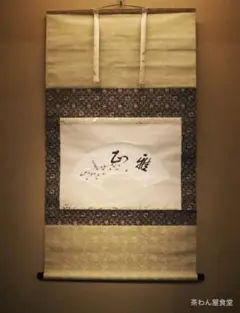 雅
茶わん屋食堂